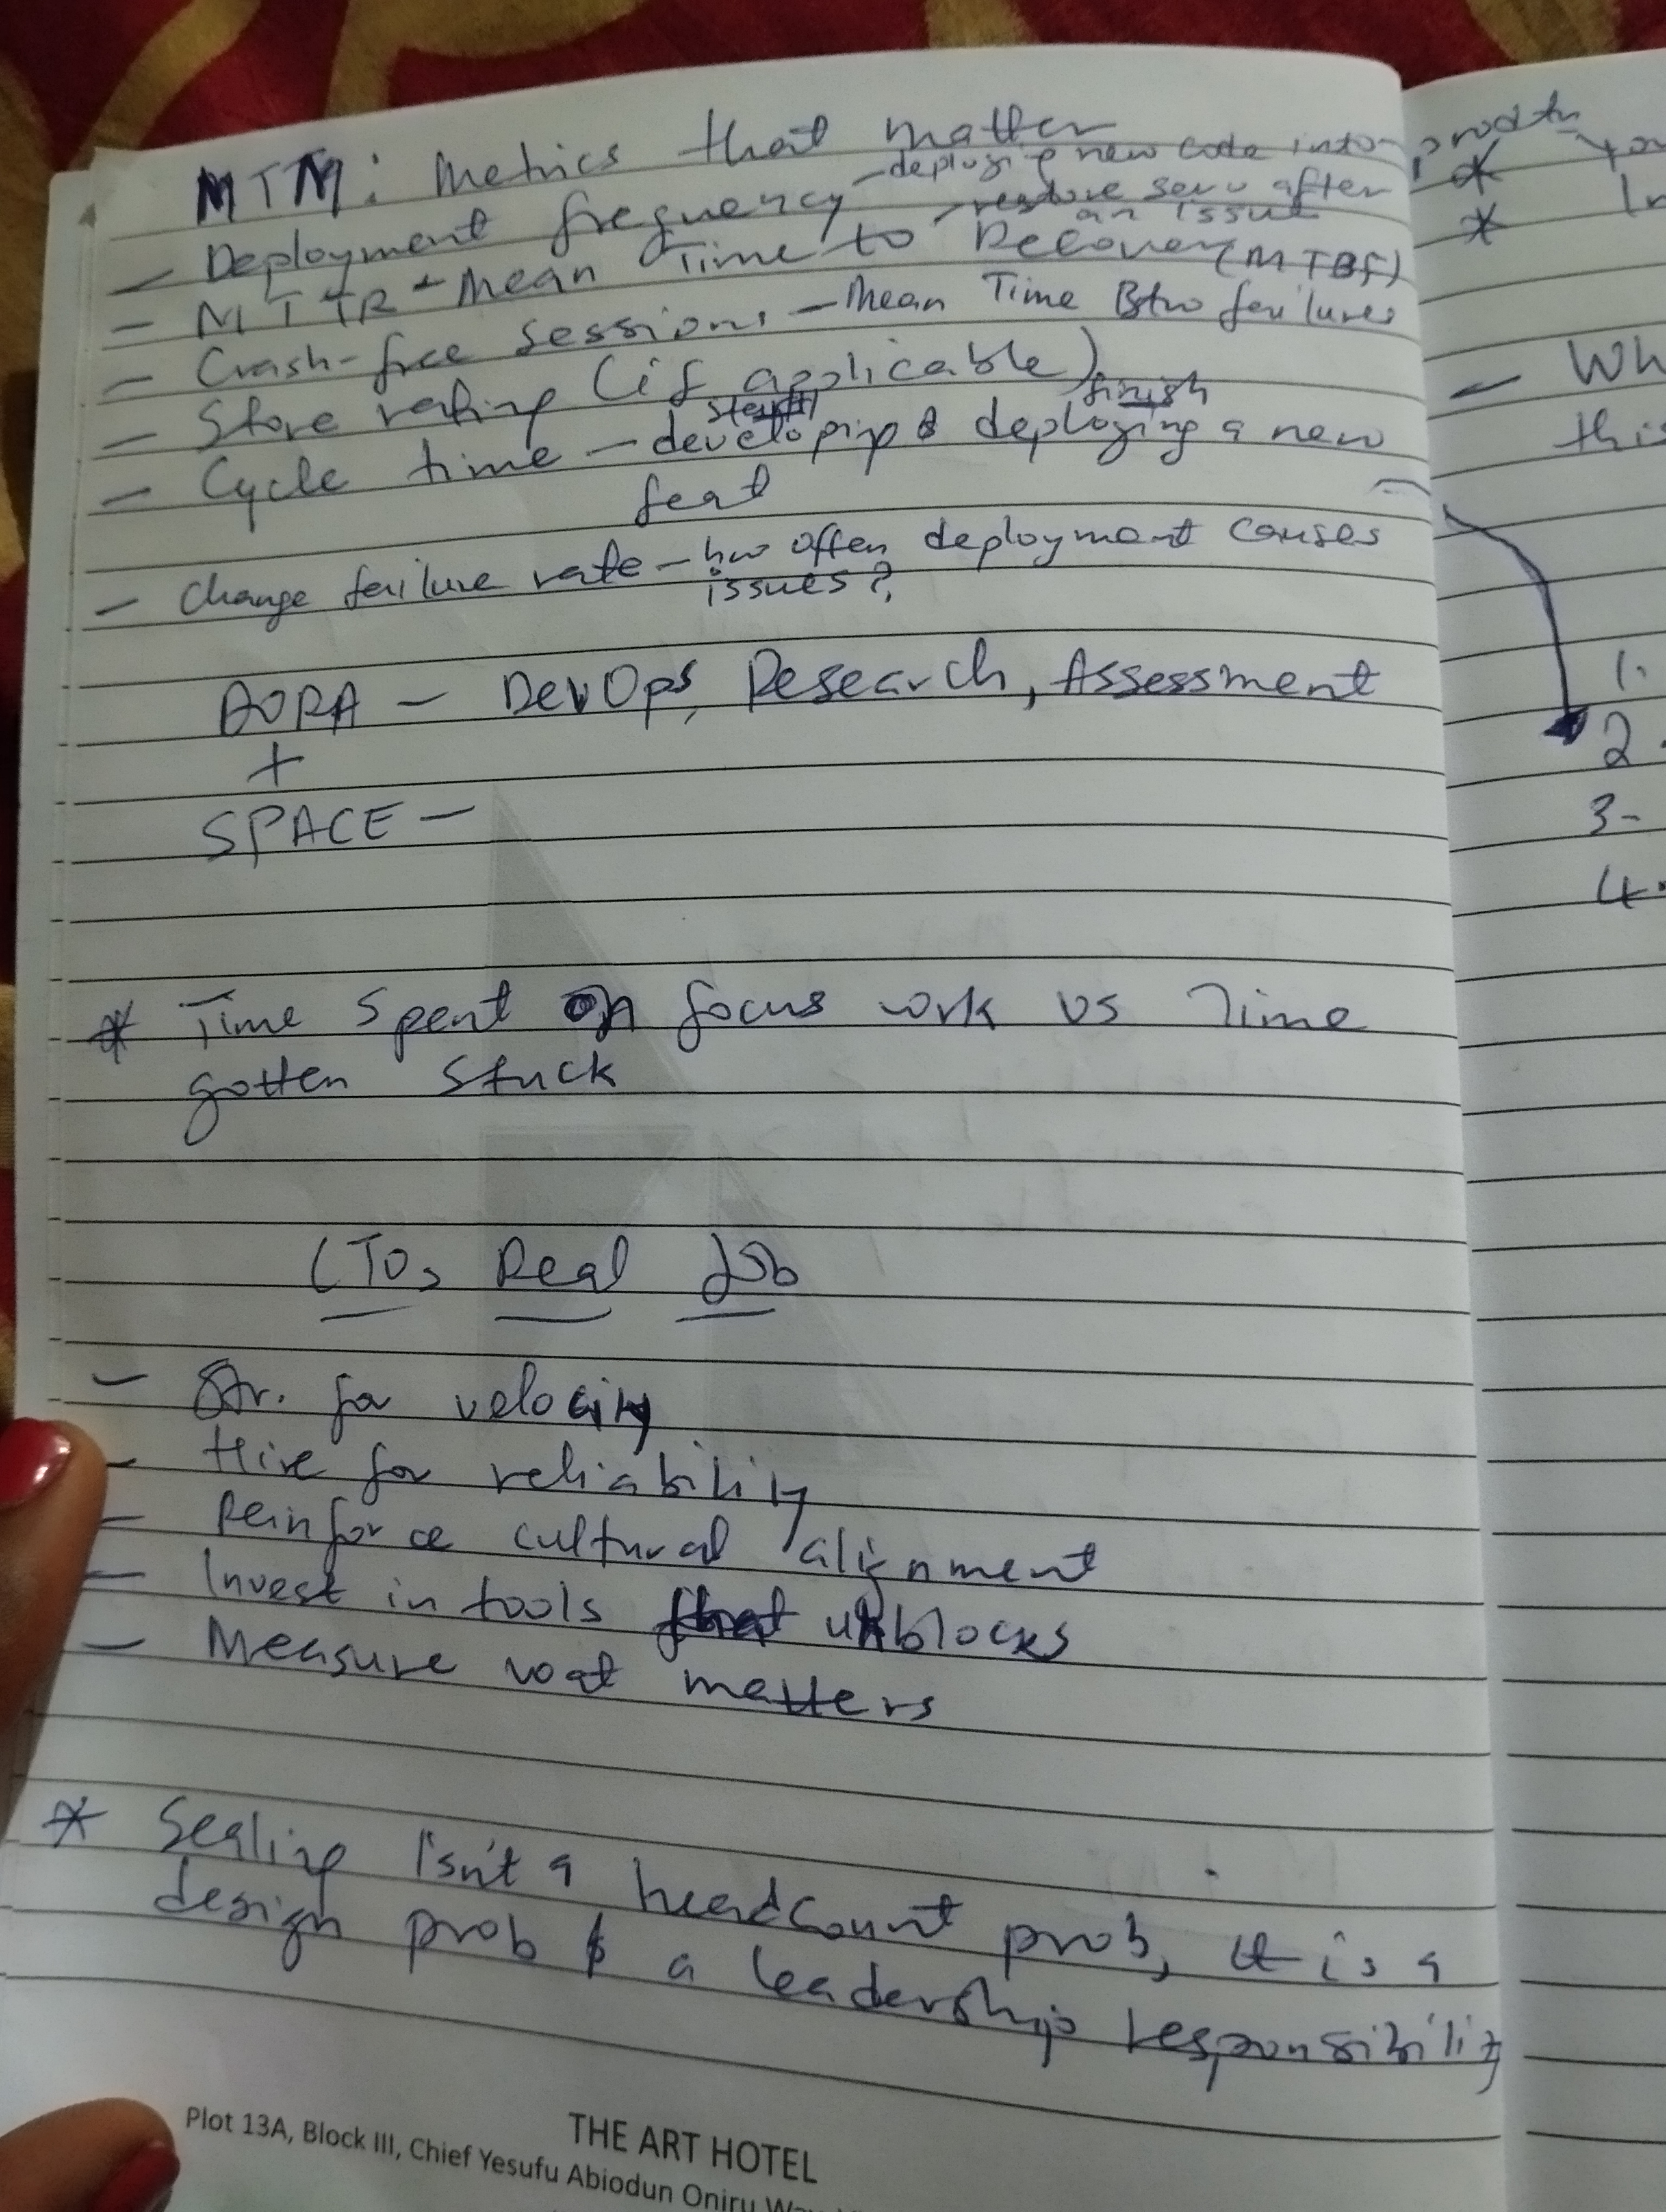 MTM: Metrics that matter
- Deployment frequency - deploying new code into prodtn
- MTTR - Mean Time to Recover - restore serv after
an issue
- Crash-free sessions - Mean Time Btw failures (MTBF)
- Store rating (if applicable)
start finish
- Cycle time - developing & deploying a new
feat
- Change failure rate - hw often deployment causes
issues?
DORA - DevOps, Research, Assessment
+
SPACE -
* Time spent on focus work vs Time
gotten stuck
CTO, Real Job
- Str. for velocity
- Hire for reliability
- Reinforce cultural alignment
- Invest in tools that unblocks
- Measure wat matters
* Scaling isn't a headcount prob, it is a
design prob & a leadership responsibility
THE ART HOTEL
Plot 13A, Block III, Chief Yesufu Abiodun Oniru
*
*
- Wh
this
1.
2.
3-
4.